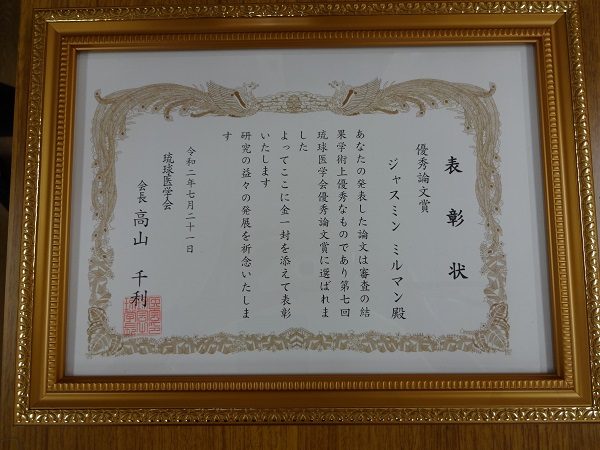 表彰状
優秀論文賞
ジャスミン ミルマン殿
あなたの発表した論文は審査の結
果学術上優秀なものであり第七回
琉球医学会優秀論文賞に選ばれま
した
よってここに金一封を添えて表彰
いたします
研究の益々の発展を祈念いたしま
す
令和二年七月二十一日
琉球医学会
会長 高山 千利